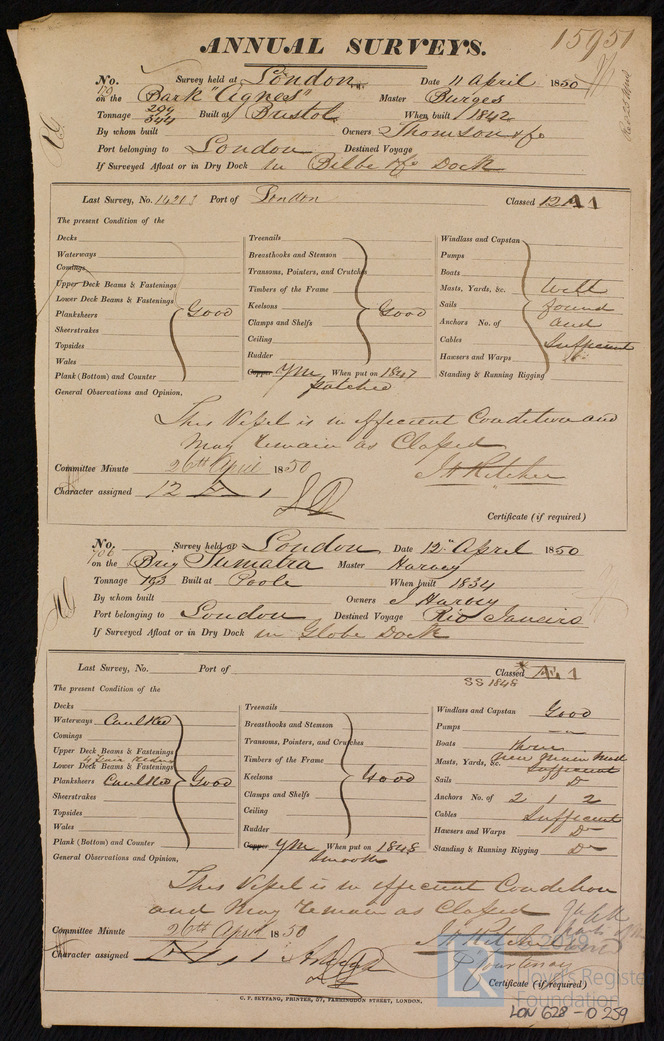 15951
ANNUAL SURVEYS.
No. Survey held at London Date 11 April 1850
on the Bark "Agnes" Master Burges
Tonnage 299 344 Built at Bristol When built 1842
By whom built Owners Thomson & Co
Port belonging to London Destined Voyage
If Surveyed Afloat or in Dry Dock in Bilbe & Co Dock
Last Survey, No. Port of London Classed 12 A1
The present Condition of the
Decks
Waterways
Comings
Upper Deck Beams & Fastenings
Lower Deck Beams & Fastenings
Planksheers Good
Sheerstrakes
Topsides
Wales
Plank (Bottom) and Counter
Treenails
Breasthooks and Stemson
Transoms, Pointers, and Crutches
Timbers of the Frame
Keelsons Good
Clamps and Shelfs
Ceiling
Rudder
Copper YM When put on 1847
patched
Windlass and Capstan
Pumps
Boats
Masts, Yards, &c. Well
Sails found
Anchors No. of and
Cables Sufficient
Hawsers and Warps
Standing & Running Rigging
General Observations and Opinion,
This Vessel is in efficient Condition and
May remain as Classed
Committee Minute 26th April 1850 J H Ritchie
Character assigned 12 A 1
Certificate (if required)
No. Survey held at London Date 12th April 1850
706
on the Brig Sumatra Master Harvey
Tonnage 193 Built at Poole When built 1834
By whom built Owners J Harvey
Port belonging to London Destined Voyage Rio Janeiro
If Surveyed Afloat or in Dry Dock in Globe Dock
Last Survey, No. Port of Classed *A1
SS 1848
The present Condition of the
Decks
Waterways Caulked
Comings
Upper Deck Beams & Fastenings
Lower Deck Beams & Fastenings
Planksheers Caulked Good
Sheerstrakes
Topsides
Wales
Plank (Bottom) and Counter
Treenails
Breasthooks and Stemson
Transoms, Pointers, and Crutches
Timbers of the Frame
Keelsons Good
Clamps and Shelfs
Ceiling
Rudder
Copper YM When put on 1848
Smooth
Windlass and Capstan Good
Pumps
Boats Three
Masts, Yards, &c. New Main Mast
Sufficient
Sails Do
Anchors No. of 2 1 2
Cables Sufficient
Hawsers and Warps Do
Standing & Running Rigging Do
General Observations and Opinion,
This Vessel is in efficient Condition
and May remain as Classed
Committee Minute 26th April 1850 J H Ritchie
Character assigned A 1 P Courtenay
Certificate (if required)
C. F. SEYFANG, PRINTER, 57, FARRINGDON STREET, LONDON.
LR
2019
Lloyd's Register
Foundation
LON 628-10 259